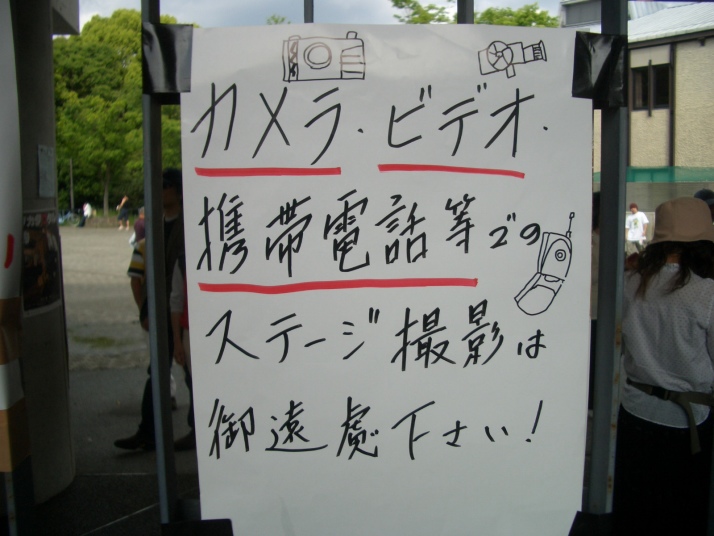 カメラ・ビデオ・
携帯電話等での
ステージ撮影は
御遠慮下さい!